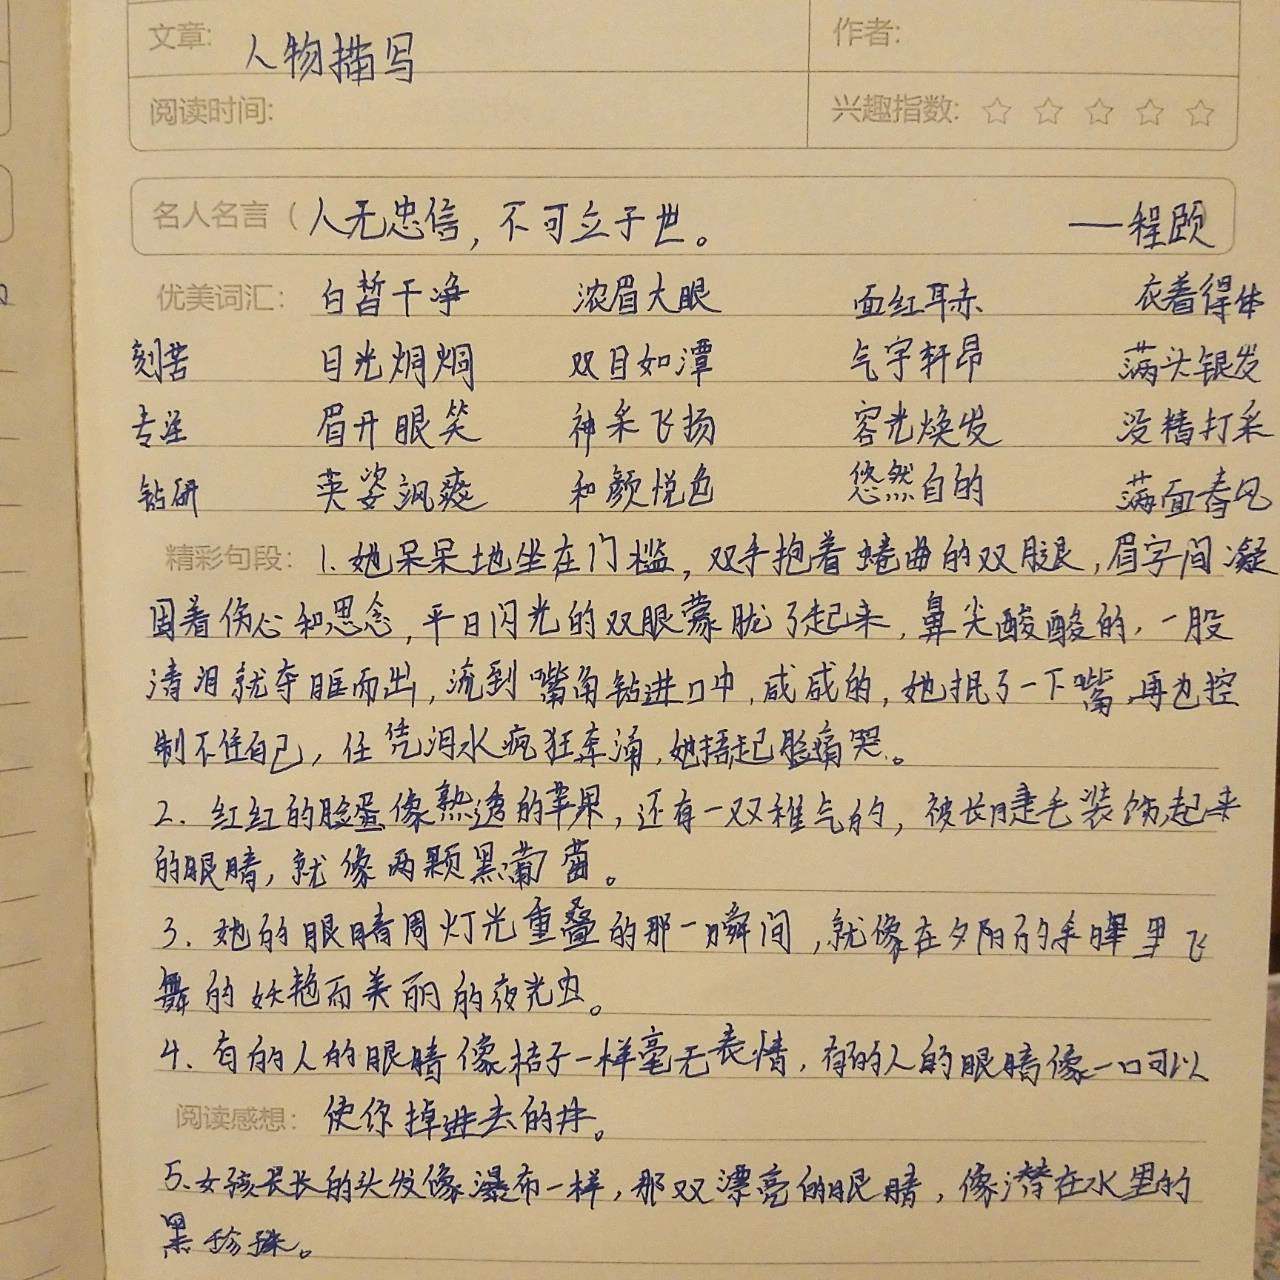 文章: 人物描写 作者:
阅读时间: 兴趣指数: ☆ ☆ ☆ ☆ ☆
名人名言 ( 人无忠信，不可立于世。 ——程颐
优美词汇: 白皙干净 浓眉大眼 面红耳赤 衣着得体
刻苦 目光炯炯 双目如潭 气宇轩昂 满头银发
专注 眉开眼笑 神采飞扬 容光焕发 没精打采
钻研 英姿飒爽 和颜悦色 悠然自的 满面春风
精彩句段: 1.她呆呆地坐在门槛，双手抱着蜷曲的双腿，眉字间凝
固着伤心和思念，平日闪光的双眼蒙胧了起来，鼻尖酸酸的，一股
清泪就夺眶而出，流到嘴角钻进口中，咸咸的，她抿了一下嘴，再也控
制不住自己，任凭泪水疯狂奔涌，她捂起脸痛哭。
2. 红红的脸蛋像熟透的苹果，还有一双稚气的，被长睫毛装饰起来
的眼睛，就像两颗黑葡萄。
3. 她的眼睛周灯光重叠的那一瞬间，就像在夕阳的余晖里飞
舞的妖艳而美丽的夜光虫。
4. 有的人的眼睛像桔子一样毫无表情，有的人的眼睛像一口可以
阅读感想: 使你掉进去的井。
5.女孩长长的头发像瀑布一样，那双漂亮的眼睛，像潜在水里的
黑珍珠。